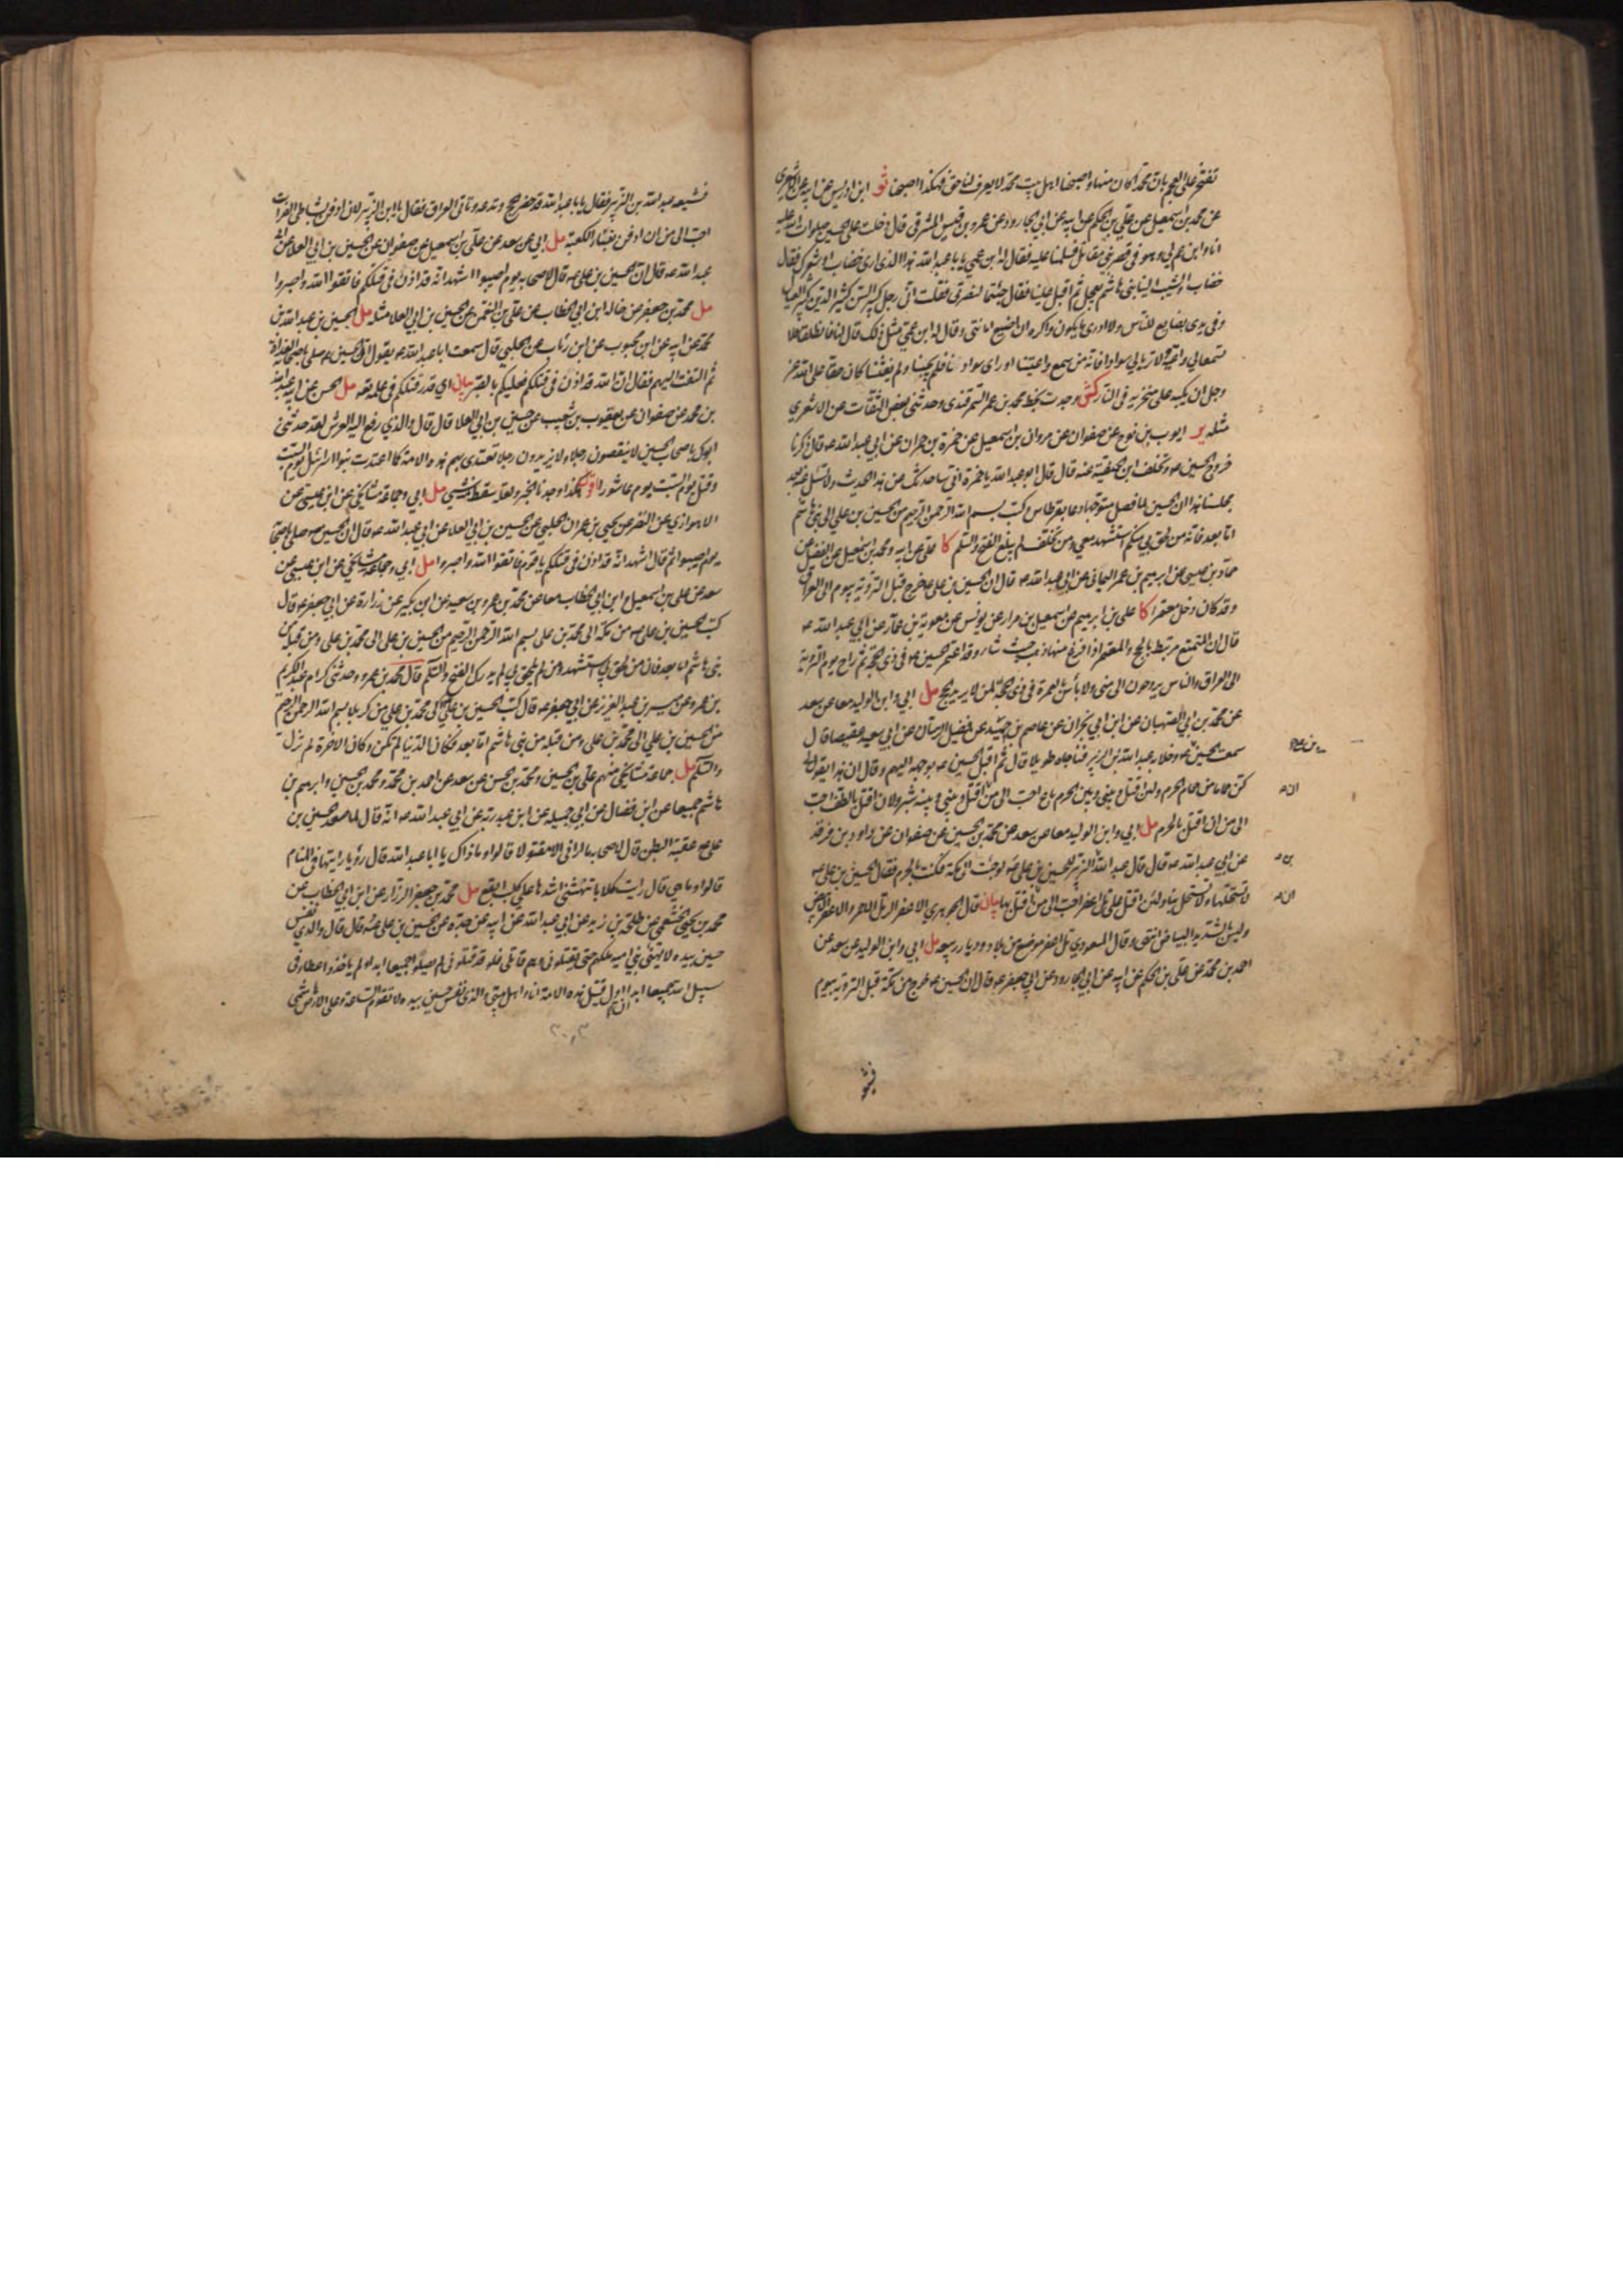 تفتخر على العجم بان محمدا كان منها واصبحنا اهل بيت محمد لا يعرف لنا حق فهكذا اصبحنا ثو ابن ادريس عن ابيه عن الاشعري
عن محمد بن اسمعيل عن علي بن الحكم عن ابيه عن ابي الجارود عن عمرو بن قيس المشرقي قال دخلت على الحسين صلوات الله عليه
انا وابن عم لي وهو في قصر بني مقاتل فسلمنا عليه فقال له ابن عمي يا با عبد الله هذا الذي ارى خضاب او شعرك فقال
خضاب والشيب الينا بني هاشم يعجل ثم اقبل علينا فقال جئتما لنصرتي فقلت اني رجل كبير السن كثير الدين كثير العيال
وفي يدي بضايع للناس ولا ادري ما يكون واكره ان اضيع امانتي وقال له ابن عمي مثل ذلك قال لنا فانطلقا فلا
تسمعا لي واعية ولا تريا لي سوادا فانه من سمع واعيتنا او راى سوادنا فلم يجبنا ولم يغثنا كان حقا على الله عز
وجل ان يكبه على منخريه في النار كش وجدت بخط محمد بن عمر السمرقندي وحدثني بعض الثقات عن الاشعري
مثله ير ايوب بن نوح عن صفوان عن مروان بن اسمعيل عن حمزة بن حمران عن ابي عبد الله ع قال ذكرنا
خروج الحسين ع وتخلف ابن الحنفية عنه قال قال ابو عبد الله يا حمزة اني ساحدثك عن هذا الحديث ولا تسأل عنه بعد
مجلسنا هذا ان الحسين لما فصل متوجها دعا بقرطاس وكتب بسم الله الرحمن الرحيم من الحسين بن علي الى بني هاشم
اما بعد فانه من لحق بي منكم استشهد معي ومن تخلف لم يبلغ الفتح والسلم كا علي عن ابيه ومحمد بن اسمعيل عن الفضل عن
حماد بن عيسى عن ابرهيم بن عمر اليماني عن ابي عبد الله ع قال ان الحسين بن علي ع خرج قبل التروية بيوم الى العراق
وقد كان دخل معتمرا كا علي بن ابرهيم عن اسمعيل بن مرار عن يونس عن معوية بن عمار عن ابي عبد الله ع
قال ان المتمتع مرتبط بالحج والمعتمر اذا فرغ منها ذهب حيث شاء وقد اعتمر الحسين ع في ذي الحجة ثم راح يوم التروية
الى العراق والناس يروحون الى منى ولا باس بالعمرة في ذي الحجة لمن لا يريد الحج مل ابي وابن الوليد معا عن سعد
عن محمد بن ابي الصهبان عن ابن ابي نجران عن عاصم بن حميد عن فضيل الرسان عن ابي سعيد عقيصا قال
سمعت الحسين ع وخلا به عبد الله بن الزبير فناجاه طويلا قال ثم اقبل الحسين ع بوجهه اليهم وقال ان هذا يقول لي
كن حماما من حمام الحرم ولئن اقتل وبيني وبين الحرم باع احب الي من ان اقتل وبيني وبينه شبر ولان اقتل بالطف احب
الي من ان اقتل بالحرم مل ابي وابن الوليد معا عن سعد عن محمد بن الحسين عن صفوان عن داود بن فرقد
عن ابي عبد الله ع قال قال عبد الله بن الزبير للحسين بن علي ع لو جئت الى مكة فكنت بالحرم فقال الحسين بن علي ع
لا نستحلها ولا تستحل بنا ولئن اقتل على تل اعفر احب الي من ان اقتل بها بيان قال الجوهري الاعفر الرمل الاحمر والاعفر الابيض
وليس بالشديد البياض انتهى وقال المسعودي تل اعفر موضع من بلاد ديار ربيعه مل ابي وابن الوليد عن سعد عن
احمد بن محمد عن علي بن الحكم عن ابيه عن ابي الجارود عن ابي جعفر ع قال ان الحسين ع خرج من مكة قبل التروية بيوم
فشيعه عبد الله بن الزبير فقال يا با عبد الله قد حضر الحج وتدعه وتاتي العراق فقال يا ابن الزبير لان ادفن بشاطئ الفرات
احب الي من ان ادفن بفناء الكعبة مل ابي عن سعد عن علي بن اسمعيل عن صفوان عن الحسين بن ابي العلا عن ابي
عبد الله ع قال ان الحسين بن علي ع قال لاصحابه يوم اصيبوا اشهد انه قد اذن في قتلكم فاتقوا الله واصبروا
مل محمد بن جعفر عن خاله ابن ابي الخطاب عن علي بن النعمن عن الحسين بن ابي العلا مثله مل الحسين بن عبد الله بن
محمد عن ابيه عن ابن محبوب عن ابن رئاب عن الحلبي قال سمعت ابا عبد الله ع يقول ان الحسين ع صلى باصحابه الغداة
ثم التفت اليهم فقال ان الله قد اذن في قتلكم فعليكم بالصبر بيان اي قدر قتلكم في علمه تع مل الحسن عن ابيه عبد الله
بن محمد عن صفوان عن يعقوب بن شعيب عن حسين بن ابي العلا قال قال والذي رفع اليه العرش لقد حدثني
ابوك باصحاب الحسين لا ينقصون رجلا ولا يزيدون رجلا تعتدي بهم هذه الامة كما اعتدت بنوا اسرائيل يوم السبت
وقتل يوم السبت يوم عاشورا اقول هكذا وجدنا الخبر ولعله سقط منه شيء مل ابي وجماعة مشايخي عن ابن عيسى عن
الاهوازي عن النضر عن يحيى بن عمران الحلبي عن الحسين بن ابي العلا عن ابي عبد الله ع قال ان الحسين ع صلى باصحابه
يوم اصيبوا ثم قال اشهد انه قد اذن في قتلكم يا قوم فاتقوا الله واصبروا مل ابي وجماعة مشايخي عن ابن عيسى عن
سعد عن علي بن اسمعيل وابن ابي الخطاب معا عن محمد بن عمرو بن سعيد عن ابن بكير عن زرارة عن ابي جعفر ع قال
كتب الحسين بن علي ع من مكة الى محمد بن علي بسم الله الرحمن الرحيم من الحسين بن علي الى محمد بن علي ومن قبله من
بني هاشم اما بعد فان من لحق بي استشهد ومن لم يلحق بي لم يدرك الفتح والسلم قال محمد بن عمرو وحدثني كرام عبد الكريم
بن عمرو عن ميسر بن عبد العزيز عن ابي جعفر ع قال كتب الحسين بن علي الى محمد بن علي من كربلا بسم الله الرحمن الرحيم
من الحسين بن علي الى محمد بن علي ومن قبله من بني هاشم اما بعد فكان الدنيا لم تكن وكان الاخرة لم تزل
والسلم مل جماعة مشايخي منهم علي بن الحسين ومحمد بن الحسن عن سعد عن احمد بن محمد ومحمد بن الحسين وابرهيم بن
هاشم جميعا عن ابن فضال عن ابي جميله عن ابن عبد ربه عن ابي عبد الله ع انه قال لما صعد الحسين بن
علي ع عقبة البطن قال لاصحابه ما اراني الا مقتولا قالوا وما ذاك يا ابا عبد الله قال رؤيا رايتها في المنام
قالوا وما هي قال رايت كلابا تنهشني اشدها علي كلب ابقع مل محمد بن جعفر الرزاز عن ابن ابي الخطاب عن
محمد بن يحيى الخثعمي عن طلحة بن زيد عن ابي عبد الله عن ابيه عن جده عن الحسين بن علي ع قال قال والذي نفس
حسين بيده لا ينتهي بني اميه ملكهم حتى يقتلوني وهم قاتلي فلو قد قتلوني لم يصلوا جميعا ابدا ولم ياخذوا عطاء في
سبيل الله جميعا ابدا ان اول قتيل هذه الامة انا واهل بيتي والذي نفس حسين بيده لا تقوم الساعة وعلى الارض هاشمي